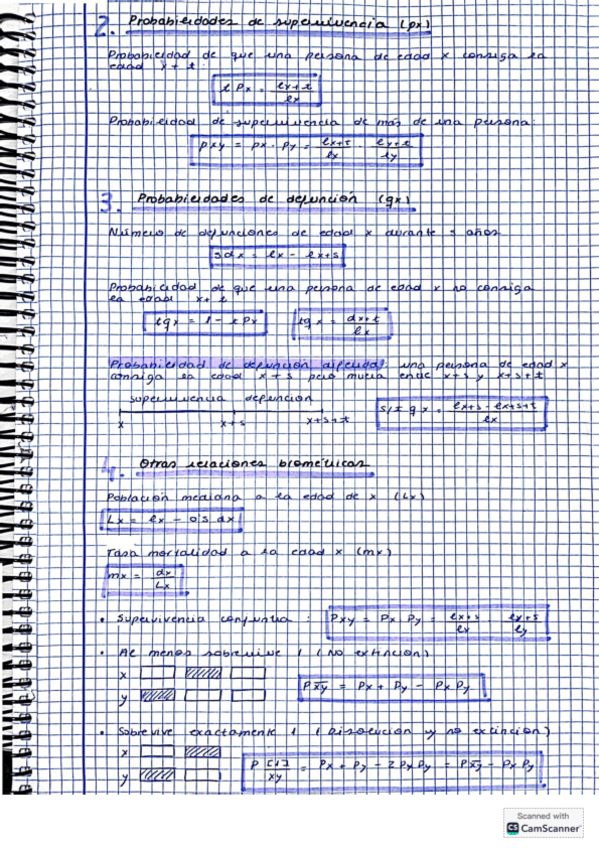 2. Probabilidades de supervivencia (px)
Probabilidad de que una persona de edad x consiga la
edad x + t :
t Px = lx+t / lx
Probabilidad de supervivencia de más de una persona:
Pxy = px · py = lx+t / lx · ly+t / ly
3. Probabilidades de defunción (qx)
Número de defunciones de edad x durante s años
sdx = lx - lx+s
Probabilidad de que una persona de edad x no consiga
la edad x + t
tqx = 1 - t Px tqx = dx+t / lx
Probabilidad de defunción diferida: una persona de edad x
consiga la edad x+s pero muera entre x+s y x+s+t
supervivencia defunción
x x+s x+s+t
s/t qx = lx+s - lx+s+t / lx
4. Otras relaciones biométricas
Población mediana a la edad de x (Lx)
Lx = lx - 0's dx
Tasa mortalidad a la edad x (mx)
mx = dx / Lx
• Supervivencia conjunta : Pxy = Px · Py = lx+s / lx · ly+s / ly
• Al menos sobrevive 1 (No extinción)
x
y
Pxy = Px + Py - Px Py
• Sobrevive exactamente 1 (Disolución y no extinción)
x
y
P [1] / xy = Px + Py - 2 Px Py = Pxy - Px Py
Scanned with
CS CamScanner